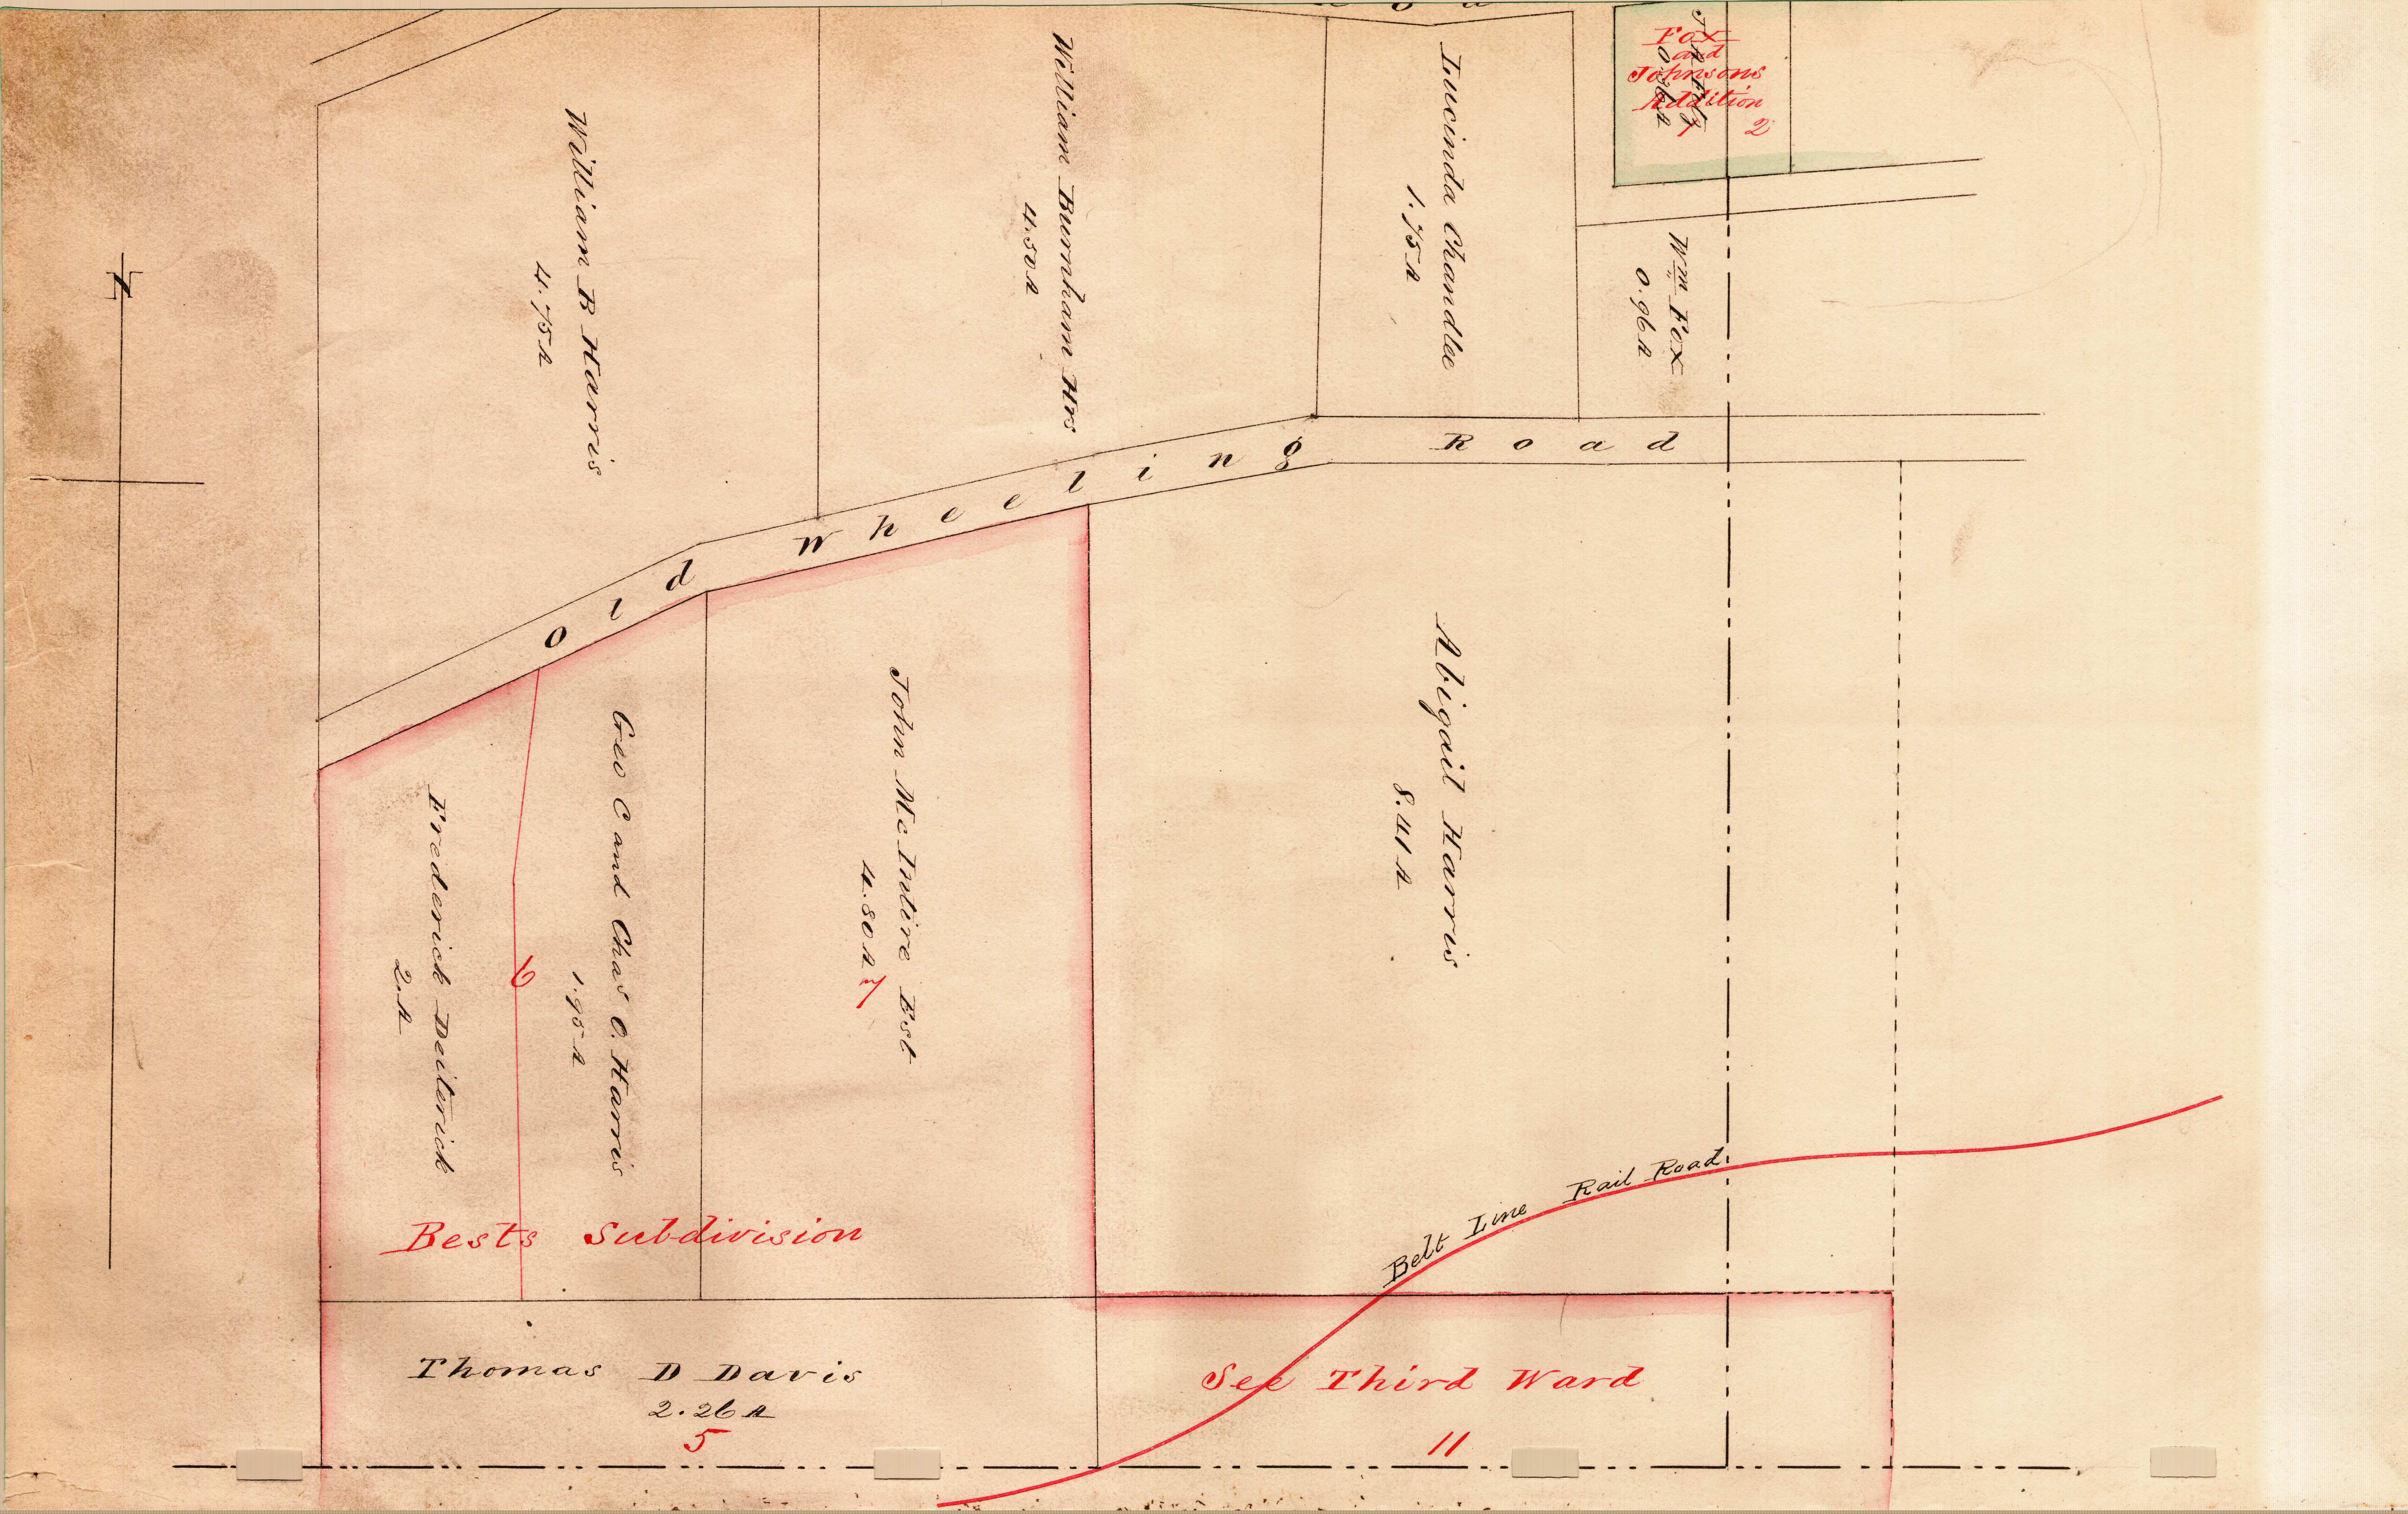 William B Harris
4.75 A
William Burnham Hrs
4.50 A
Lucinda Chandlee
1.75 A
Fox
and
Johnsons
Addition
1 2
Wm Fox
0.96 A
Old Wheeling Road
Frederick Deiterick
2. A
6
Geo C and Chas O. Harris
1.95 A
John Mc Intire Est
4.80 A
7
Abigail Harris
8.41 A
Bests Subdivision
Belt Line Rail Road
Thomas D Davis
2.26 A
5
See Third Ward
11